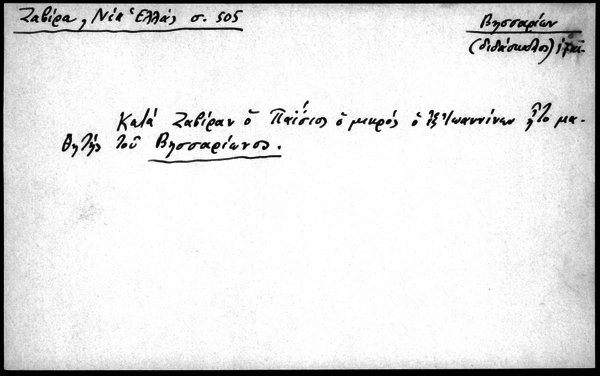 Ζαβίρα, Νέα Ἑλλάς σ. 505
Βησσαρίων
(διδάσκαλος)
Κατά Ζαβίραν ὁ Παΐσιος ὁ μικρός ὁ ἐξ Ἰωαννίνων ἦτο μα-
θητής τοῦ Βησσαρίωνος.